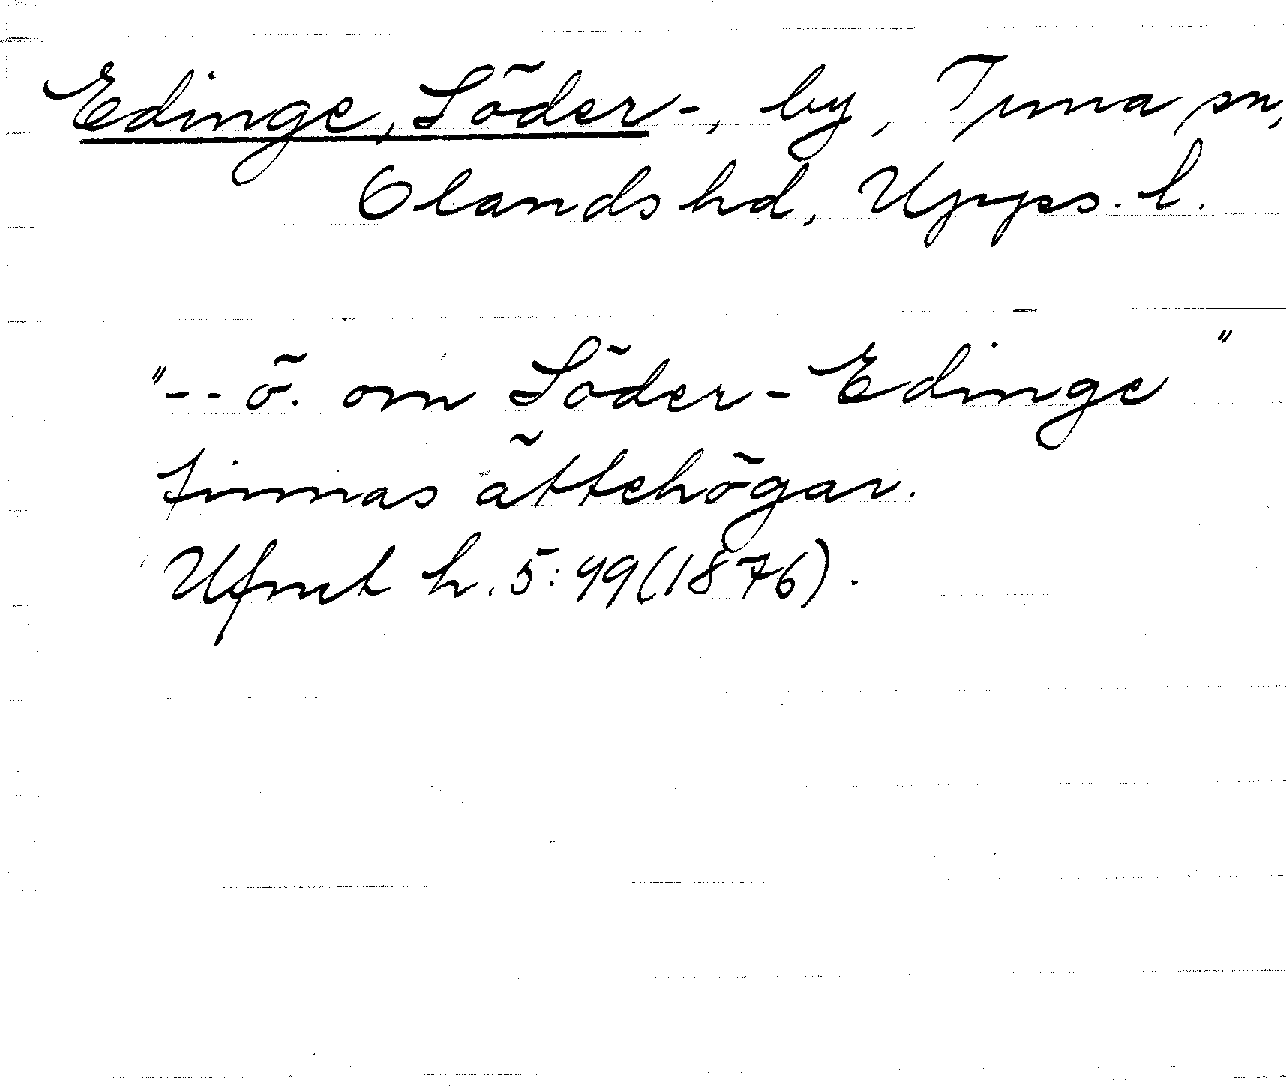 Edinge, Söder-, by, Tuna sn,
Olands hd, Upps. l.
"-- ö. om Söder-Edinge "
finnas ättehögar.
Ufmt h. 5:49 (1876).